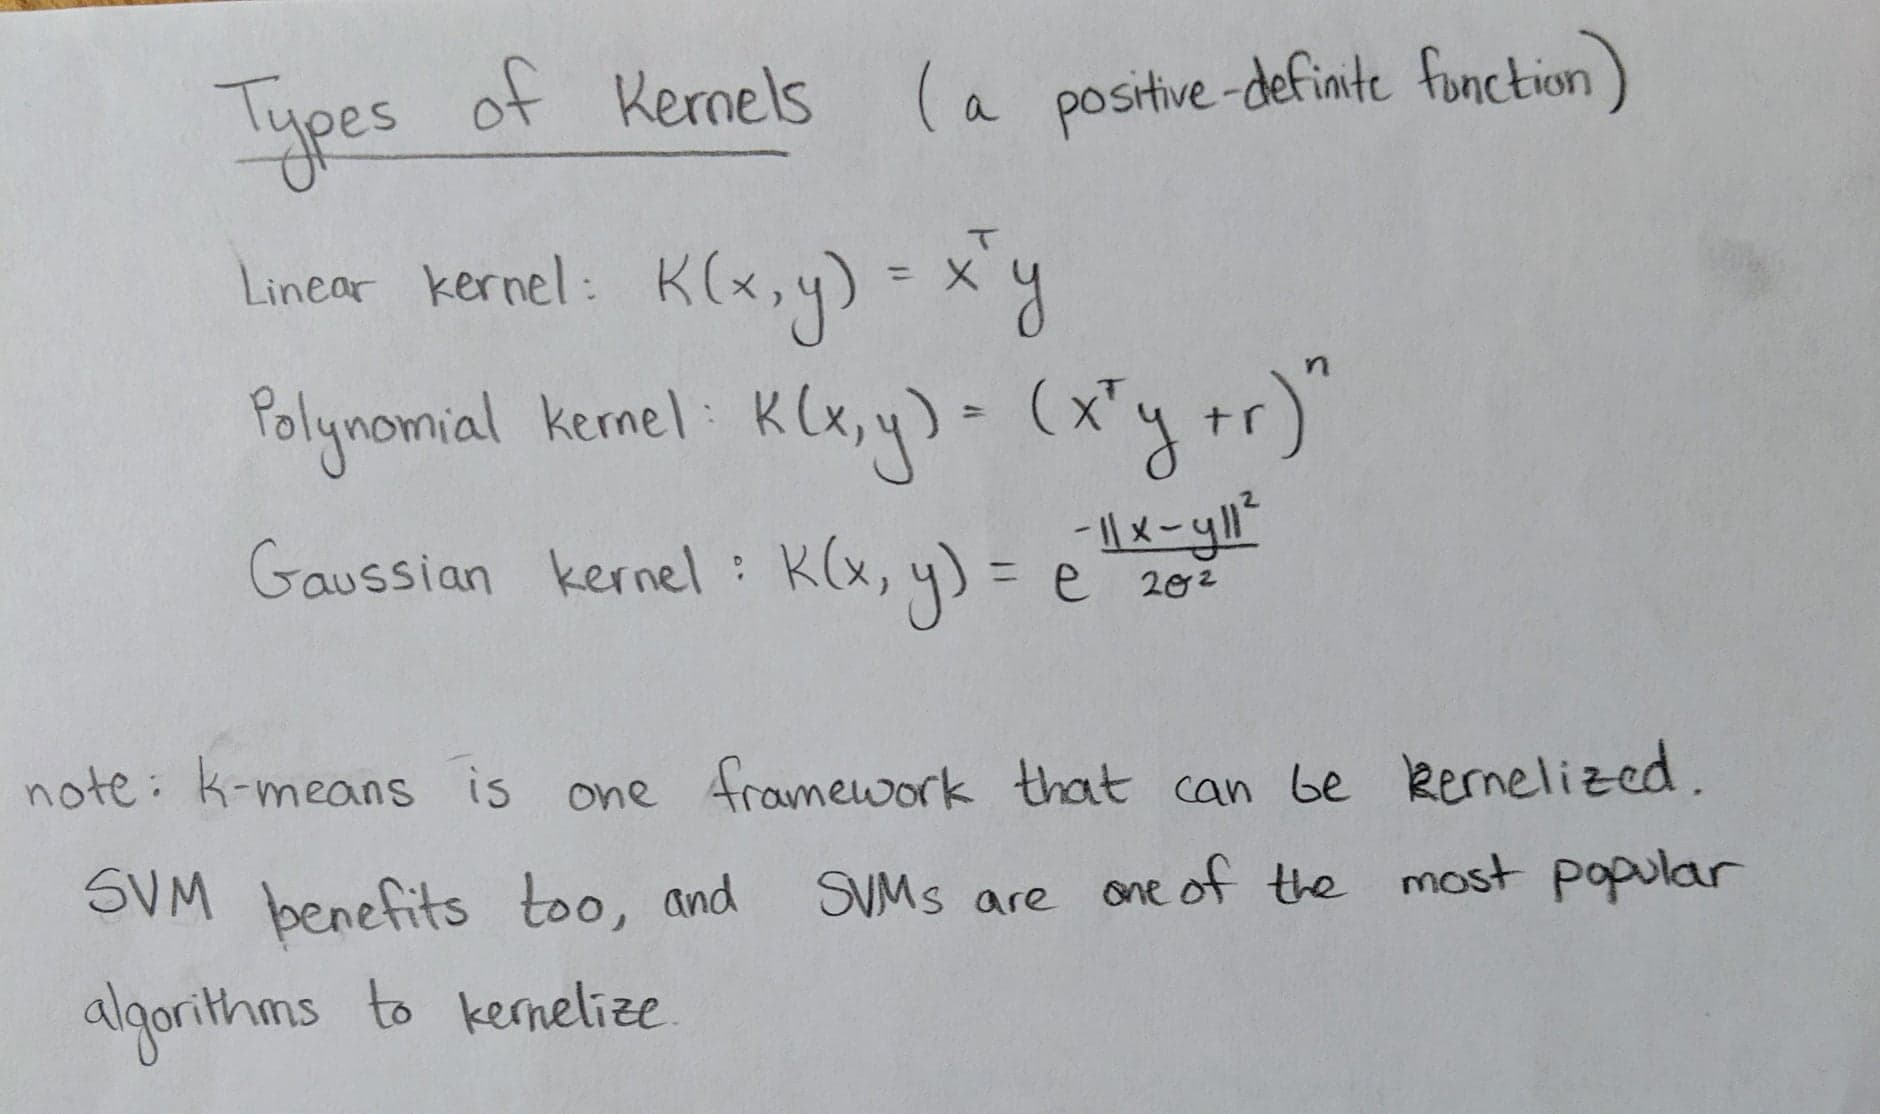 Types of Kernels (a positive-definite function)
Linear kernel: K(x,y) = xᵀy
Polynomial kernel: K(x,y) = (xᵀy +r)ⁿ
Gaussian kernel: K(x,y) = e^(-||x-y||²/2σ²)
note: k-means is one framework that can be kernelized.
SVM benefits too, and SVMs are one of the most popular
algorithms to kernelize.